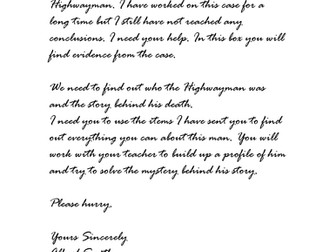 Highwayman. I have worked on this case for a
long time but I still have not reached any
conclusions. I need your help. In this box you will
find evidence from the case.
We need to find out who the Highwayman was
and the story behind his death.
I need you to use the items I have sent you to find
out everything you can about this man. You will
work with your teacher to build up a profile of him
and try to solve the mystery behind his story.
Please hurry.
Yours Sincerely